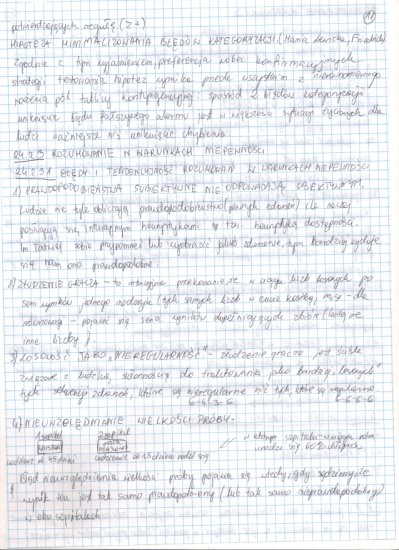 potwierdzających regułę (Z+)
HIPOTEZA MINIMALIZOWANIA BŁĘDÓW KATEGORYZACJI (Maria Lewicka,
Zgodnie z tym wyjaśnieniem, preferencja wobec konfirmacyjnych
strategii testowania hipotez wynika przede wszystkim z nierównomiernego
ważenia pól tablicy kontyngencyjnej: spośród 2 błędów kategoryzacji
uniknięcie błędu fałszywego alarmu jest w większości sytuacji życiowych dla
ludzi ważniejsze niż uniknięcie chybienia.
24.2.3 ROZUMOWANIE W WARUNKACH NIEPEWNOŚCI
24.2.3.1 BŁĘDY I TENDENCYJNOŚĆ ROZUMOWAŃ W WARUNKACH NIEPEWNOŚCI
1) PRAWDOPODOBIEŃSTWA SUBIEKTYWNE NIE ODPOWIADAJĄ OBIEKTYWNYM.
Ludzie nie tyle obliczają prawdopodobieństwo (pewnych zdarzeń) ile raczej
posługują się intuicyjnymi heurystykami w tym heurystyką dostępności.
Im łatwiej sobie przypomnieć lub wyobrazić jakieś zdarzenie, tym bardziej wydaje
się nam ono prawdopodobne.
2) ZŁUDZENIE GRACZA - to intuicyjne przekonanie, że w ciągu liczb losowych po
serii wyniku jednego rodzaju (tych samych liczb w rzucie kostką) musi - dla
równowagi - pojawić się seria wyników dopełniających zbiór (kolejne
inne liczby).
3) LOSOWOŚĆ JAKO "NIEREGULARNOŚĆ" - złudzenie gracza jest ściśle
związane z ludzką skłonnością do traktowania jako bardziej "losowych"
tych sekwencji zdarzeń, które są nieregularne niż tych, które są regularne
6-4-3-6 6-6-6-6
4) NIEUWZGLĘDNIANIE WIELKOŚCI PRÓBY -
1 szpital 2 szpital
w którym szpitalu w ciągu roku
urodzi się 60% chłopców
codziennie ok 45 dzieci codziennie ok 15 dzieci rodzi się
Błąd nieuwzględniania wielkości próby pojawia się wtedy, gdy sądzimy, że
wynik ten jest tak samo prawdopodobny (lub tak samo nieprawdopodobny)
w obu szpitalach